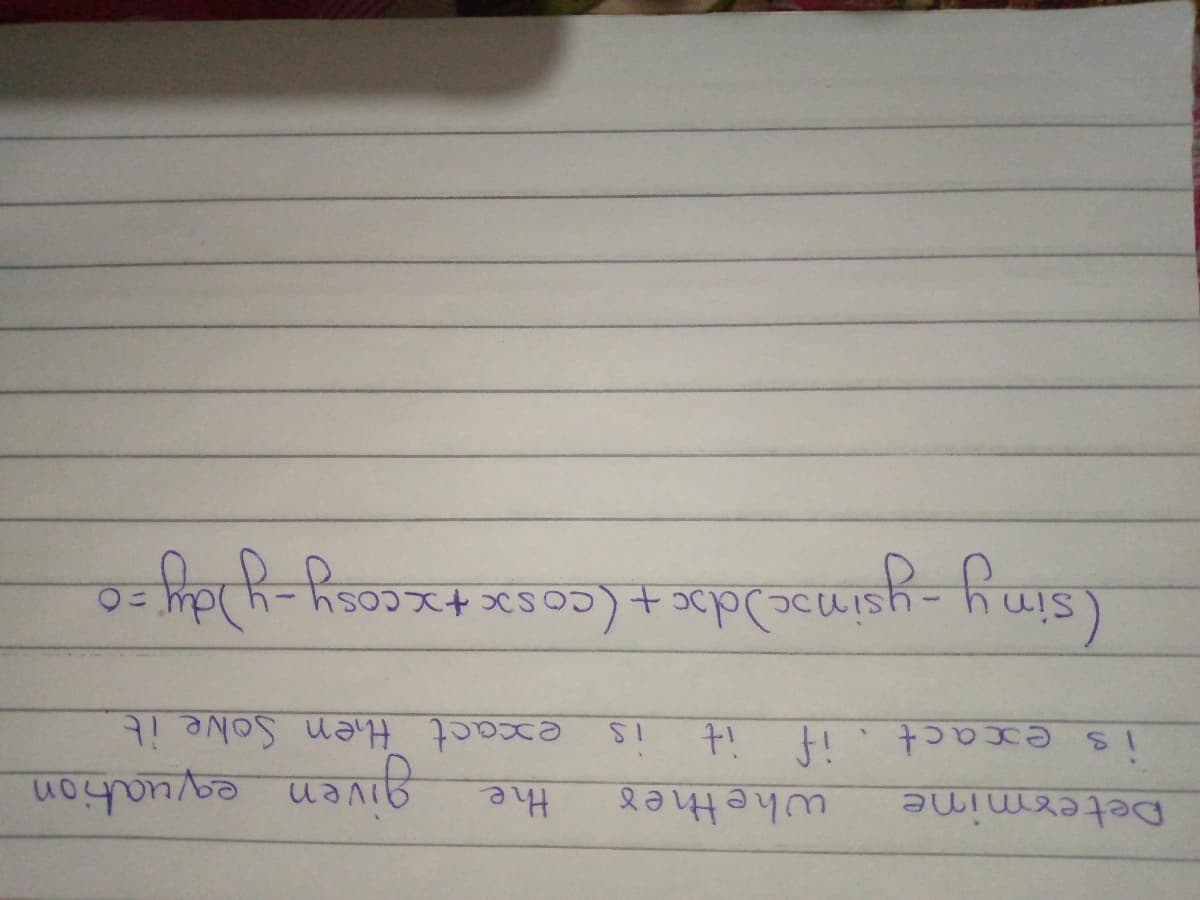 Determine whether the given equation
is exact. if it is exact then solve it
(siny-ysinx)dx+(cosx+xcosy-y)dy=0